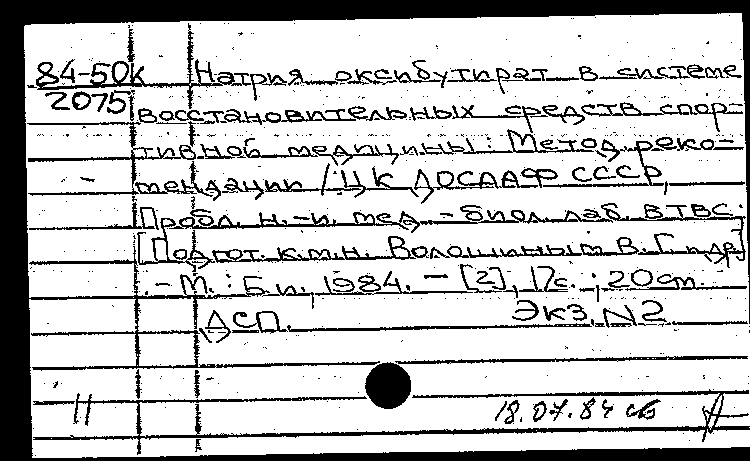 84-50к Натрия оксибутират в системе
2075 восстановительных средств спор-
тивной медицины : Метод. реко-
мендации / ЦК ДОСААФ СССР,
Пробл. н.-и. мед.-биол. лаб. ВТВС;
[Подгот. к.м.н. Волошиным В. Г. и др.]
.-М. : Б.и., 1984. — [2], 17с. ; 20 см.
ДСП. Экз. N2
11 18.07.84